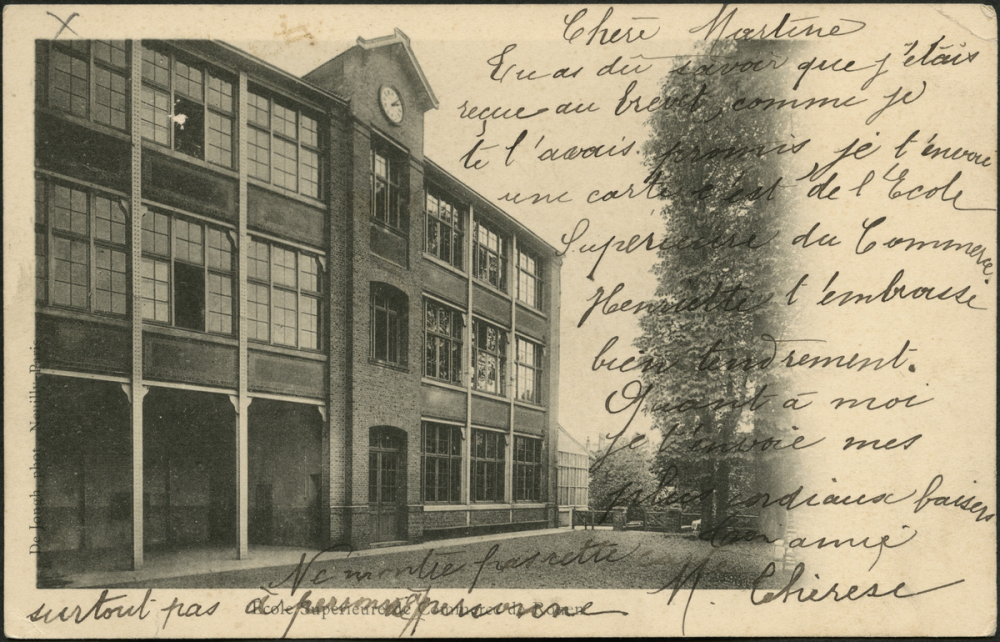 Chère Martine
Tu as dû savoir que j'étais
reçue au brevet comme je
te l'avais promis je t'envoie
une carte c'est de l'Ecole
Supérieure du Commerce
Henriette t'embrasse
bien tendrement.
Quant à moi
je t'envoie mes
plus cordiaux baisers
Ton amie
M. Thérèse
Ne montre pas cette
surtout pas à personne personne
École Supérieure de Commerce de Rouen
De Jongh, phot. Neuilly-Paris